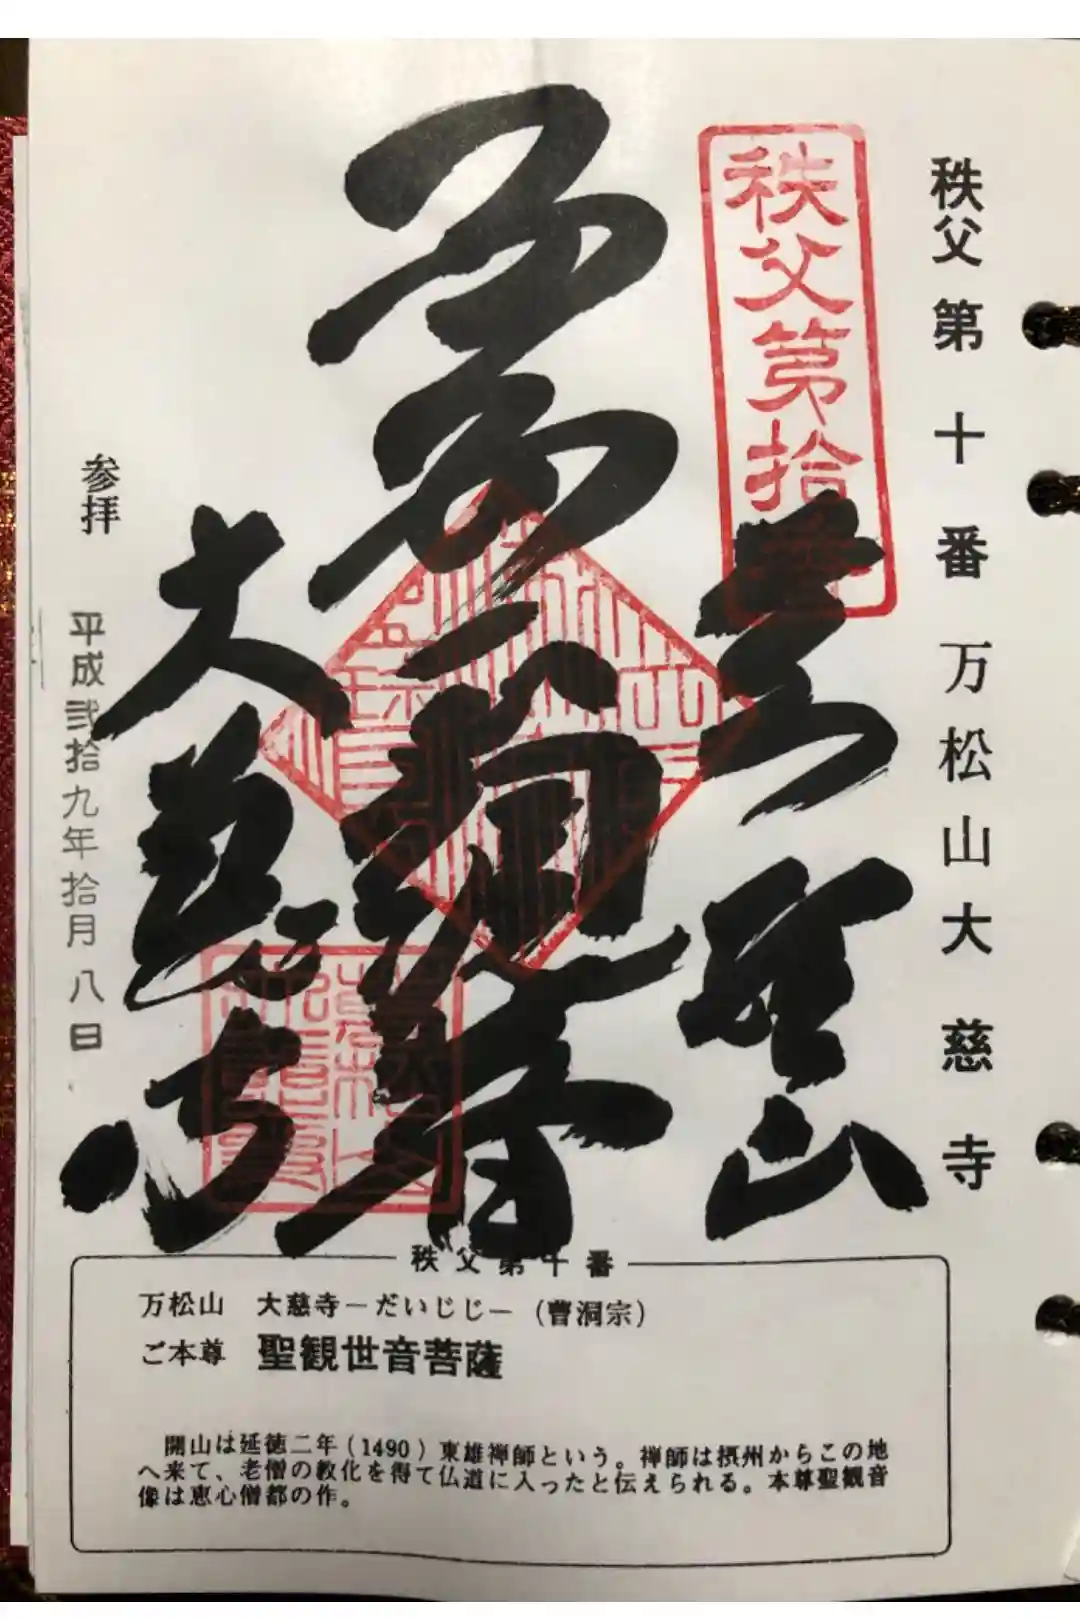 秩父第十番万松山大慈寺
秩父第拾番
万松山
大慈寺
参拝
平成弐拾九年拾月八日
秩父第十番
万松山 大慈寺－だいじじ－（曹洞宗）
ご本尊 聖観世音菩薩
開山は延徳二年（1490）東雄禅師という。禅師は摂州からこの地
へ来て、老僧の教化を得て仏道に入ったと伝えられる。本尊聖観音
像は恵心僧都の作。